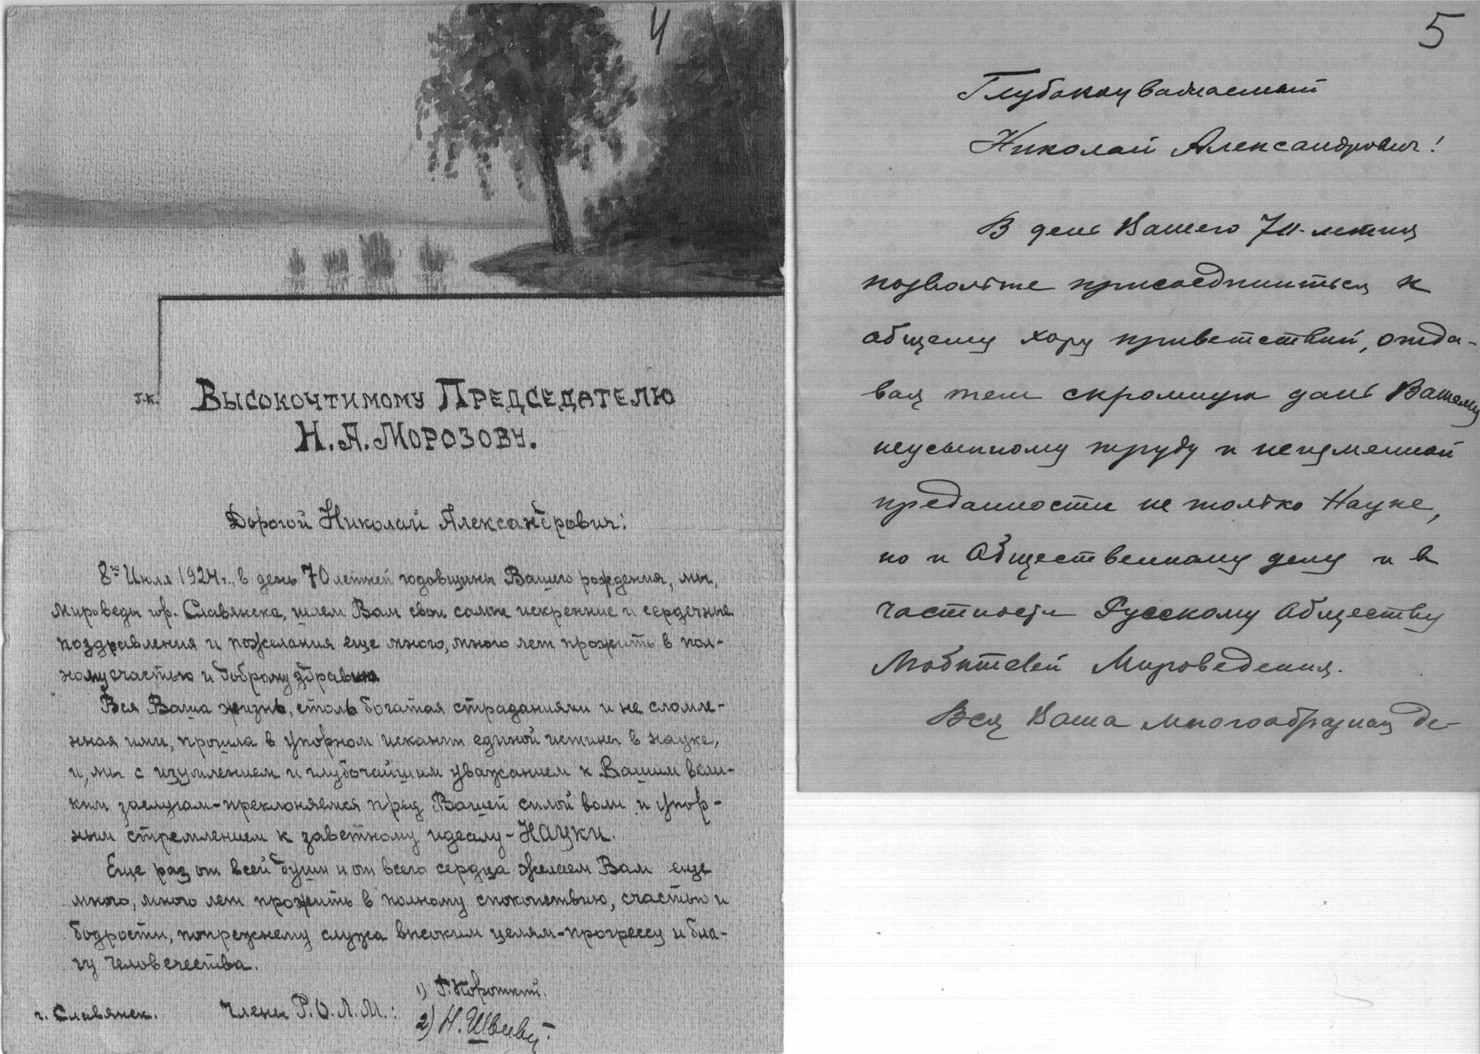 4
Г.К.
Высокочтимому Председателю
Н. А. Морозову.
Дорогой Николай Александрович!
8го Июля 1924 г., в день 70 летней годовщины Вашего рождения, мы,
мироведы гор. Славянска, шлем Вам свои самые искренние и сердечные
поздравления и пожелания еще много, много лет прожить в пол-
ному счастью и доброму здравию
Вся Ваша жизнь, столь богатая страданиями и не сломле-
нная ими, прошла в упорном искании единой истины в науке,
и, мы с изумлением и глубочайшим уважением к Вашим вели-
ким заслугам-преклоняемся пред Вашей силой воли и упор-
ным стремлением к заветному идеалу-Науки.
Еще раз от всей души и от всего сердца желаем Вам еще
много, много лет прожить в полному спокойствию, счастью и
бодрости, попрежнему служа высоким целям-прогрессу и бла-
гу человечества.
г. Славянск. Члены Р.О.Л.М.:
1) Г. Короткий.
2) Н.
5
Глубокоуважаемый
Николай Александрович!
В день Вашего 70-летия
позвольте присоединиться к
общему хору приветствий, отда-
вая тем скромную дань Вашему
неусыпному труду и неизменной
преданности не только Науке,
но и Общественному делу и в
частности Русскому Обществу
Любителей Мироведения.
Вся Ваша многообразная де-